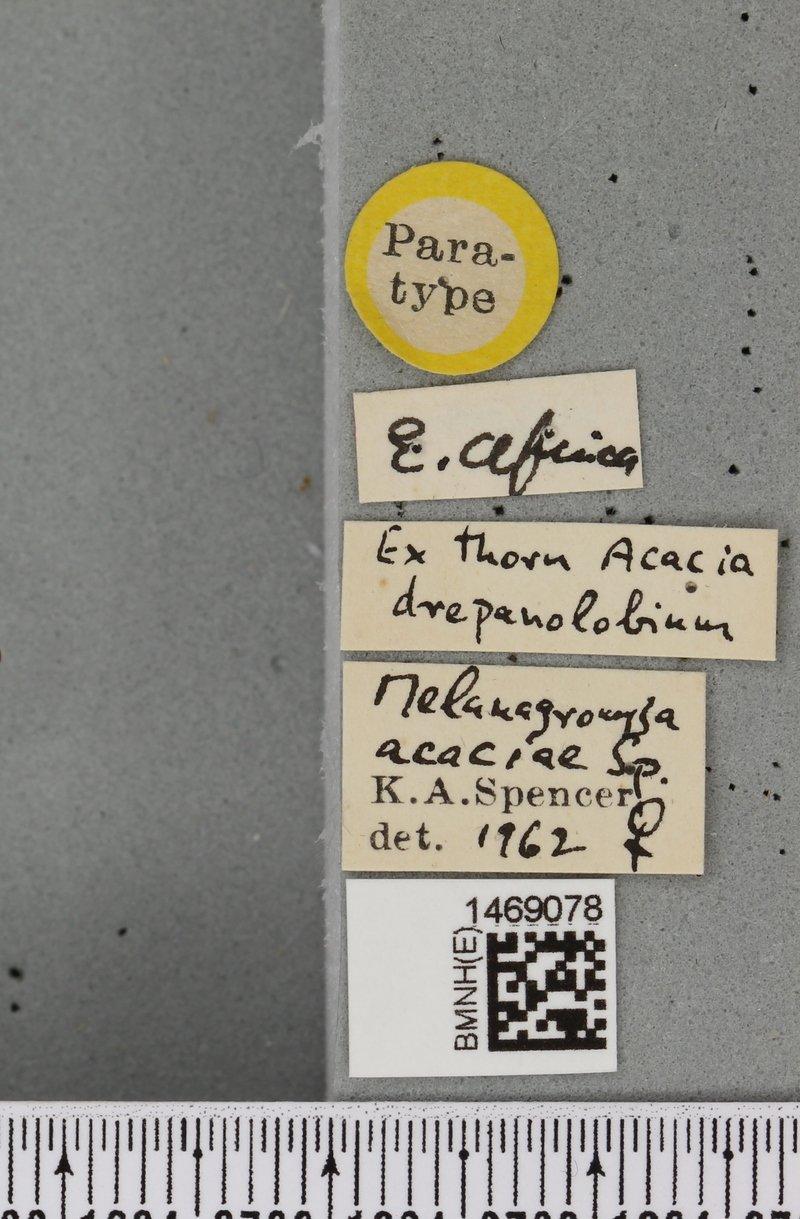 Para-
type
E. Africa
Ex thorn Acacia
drepanolobium
Melanagromyza
acaciae Sp.
K.A.Spencer
det. 1962 ♀
1469078
BMNH(E)